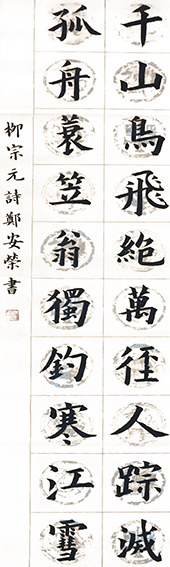 千山鳥飛絕萬徑人踪滅
孤舟蓑笠翁獨釣寒江雪
柳宗元詩鄭安榮書